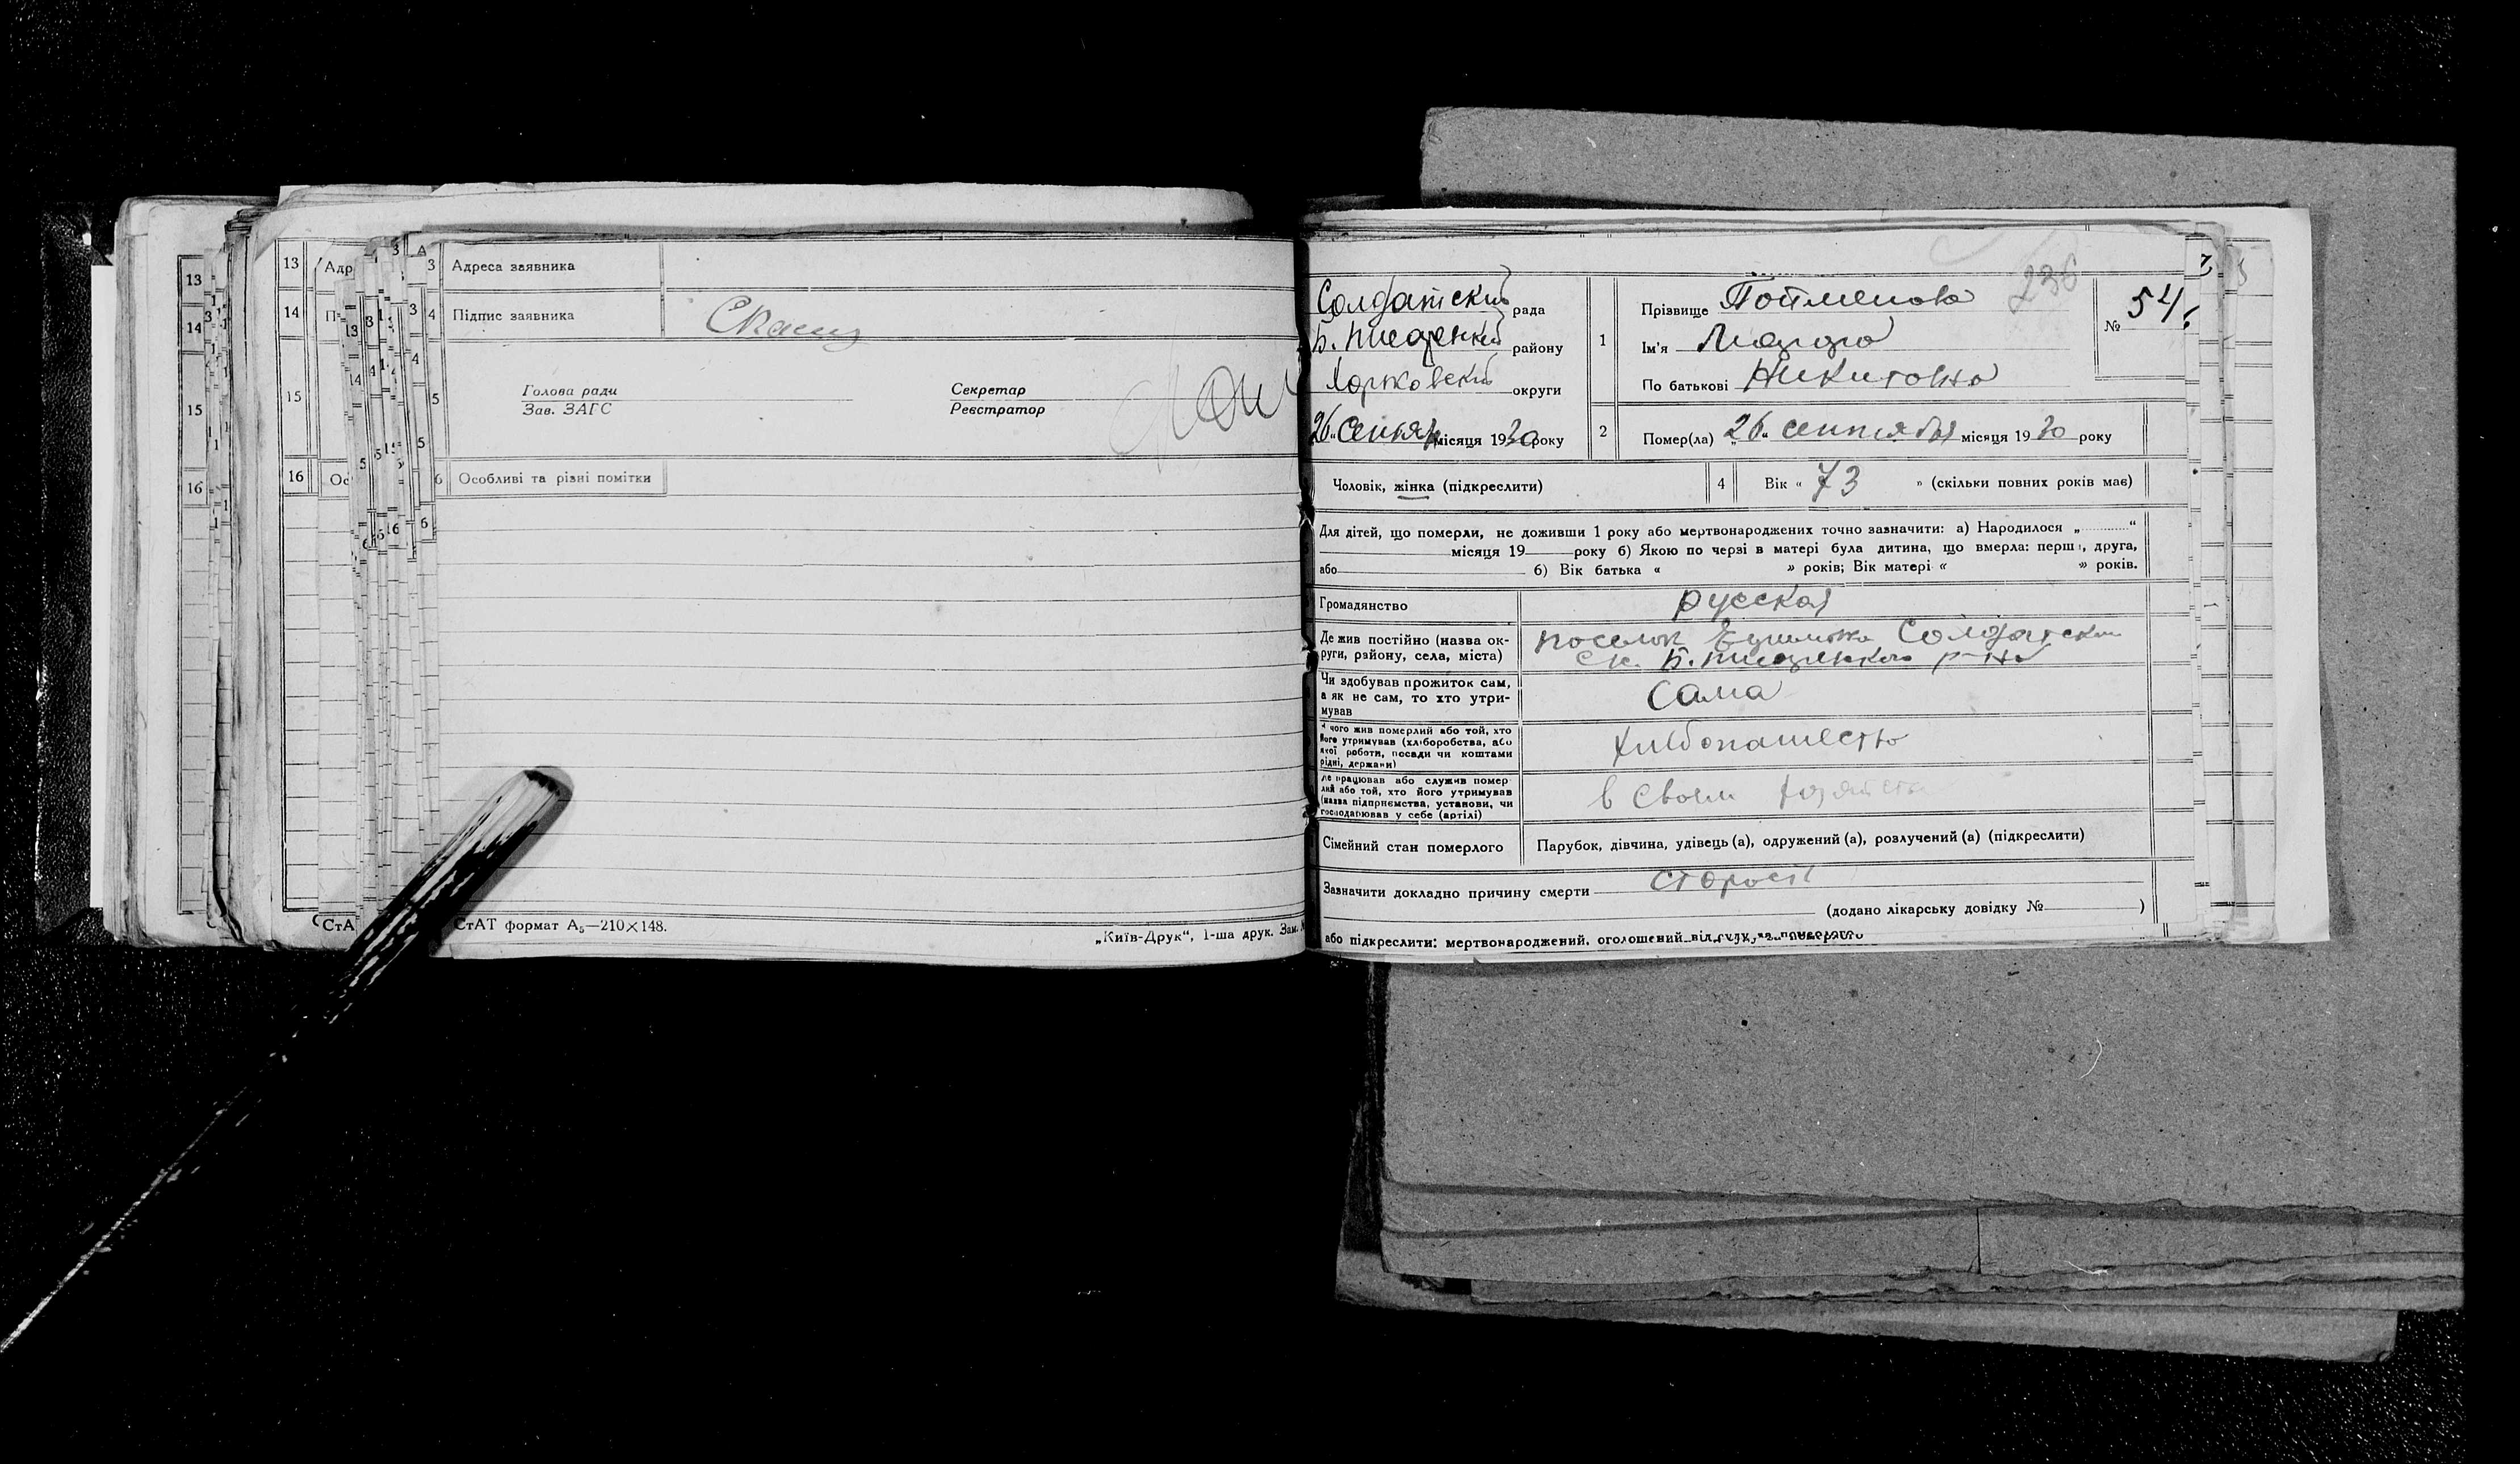 13 Адреса заявника
14 Підпис заявника
15
Голова ради
Зав. ЗАГС
Секретар
Реєстратор
16 Особливі та різні помітки
СтАТ формат А₅—210×148.
„Київ-Друк“, 1-ша друк. Зам.
236
Солдатский рада
Б. Писаренкий району
Харковский округи
26 „Сентяб місяця 1930 року
1 Прізвище Пойменова
Ім'я
По батькові Никитовна
№ 54
2 Помер(ла) „26“ сентября місяця 1930 року
Чоловік, жінка (підкреслити)
4 Вік « 73 » (скільки повних років має)
Для дітей, що померли, не доживши 1 року або мертвонароджених точно зазначити: а) Народилося „..........“
місяця 19 року б) Якою по черзі в матері була дитина, що вмерла: перша, друга,
або б) Вік батька « » років; Вік матері « » років.
Громадянство русская
Де жив постійно (назва ок-
руги, району, села, міста)
поселок Солдатский
с/с. Б. Писаренкого р-на
Чи здобував прожиток сам,
а як не сам, то хто утри-
мував
сама
чого жив померлий або той, хто
його утримував (хліборобства, або
якої роботи, посади чи коштами
рідні, держави)
хлебопашество
Де працював або служив помер
лий або той, хто його утримував
(назва підприємства, установи, чи
господарював у себе (артілі)
в своем хозяйстве
Сімейний стан померлого Парубок, дівчина, удівець (а), одружений (а), розлучений (а) (підкреслити)
Зазначити докладно причину смерти старость
(додано лікарську довідку № )
або підкреслити: мертвонароджений, оголошений від суду за померлого